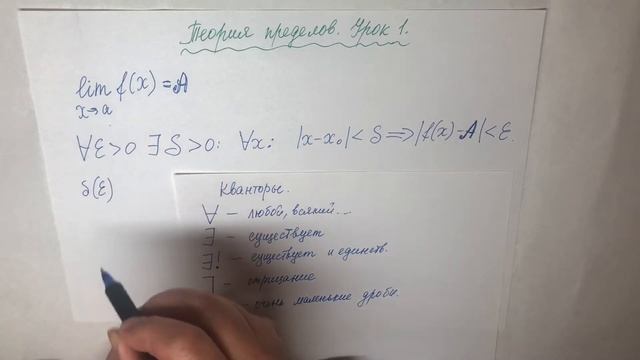 Теория пределов. Урок 1.
lim f(x) = A
x→a
∀ε>0 ∃δ>0: ∀x: |x-x₀|<δ ⇒ |f(x)-A|<ε.
δ(ε)
Кванторы.
∀ – любой, всякий...
∃ – существует
∃! – существует и единств.
– отрицание
– очень маленькие дроби.